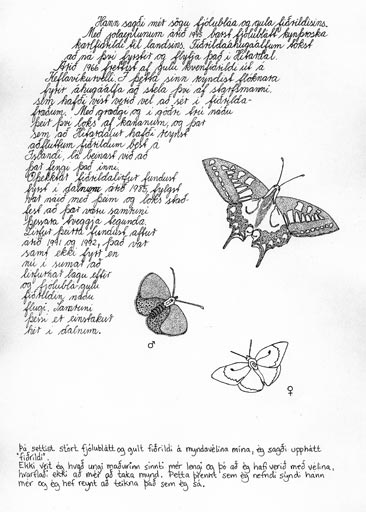 Hann sagði mér sögu fjólubláa og gula fiðrildisins.
Með jólaeplunum árið 1945 barst fjólublátt kynþroska
karlfiðrildi til landsins. Fiðrildaáhugafólki tókst
að ná því fyrstir og flytja það í Hítardal.
Árið 1966 fannst af gulu kvenfiðrildi út á
Keflavíkurvelli. Í þetta sinn reyndist flóknara
fyrir áhugafólk að stela því af starfsmanni
sem hafði vest verið vel að sér í fiðrilda-
fræðum. Með græðgi og í góðri trú náðu
þeir því loks af kananum, og þar
sem að Hítardalur hafði reynst
aðfluttum fiðrildum best á
Íslandi, lá beinast við að
það fengi það inni.
Óþekktar fiðrildalirfur fundust
fyrst í dalnum árið 1985, fylgst
var náið með þeim og loks stað-
fest að þar væru samruni
þessara tveggja tegunda.
Lirfur þeirra fundust aftur
árið 1991 og 1992, það var
samt ekki fyrr en
nú í sumar að
lirfurnar lágu eftir
og fjólublá-gulu
fiðrildin náðu
flugi. Samruni
þeirra er einstakur
hér í dalnum.
♂
♀
Þú settist stórt fjólublátt og gult fiðrildi á myndavélina mína, ég sagði upphátt
"fiðrildi".
Ekki veit ég hvað ungi maðurinn sinnti mér lengi og þó að ég hafi verið með vélina,
hvarflaði ekki að mér að taka mynd. Þetta þrennt sem ég nefndi sýndi hann
mér og ég hef reynt að teikna það sem ég sá.